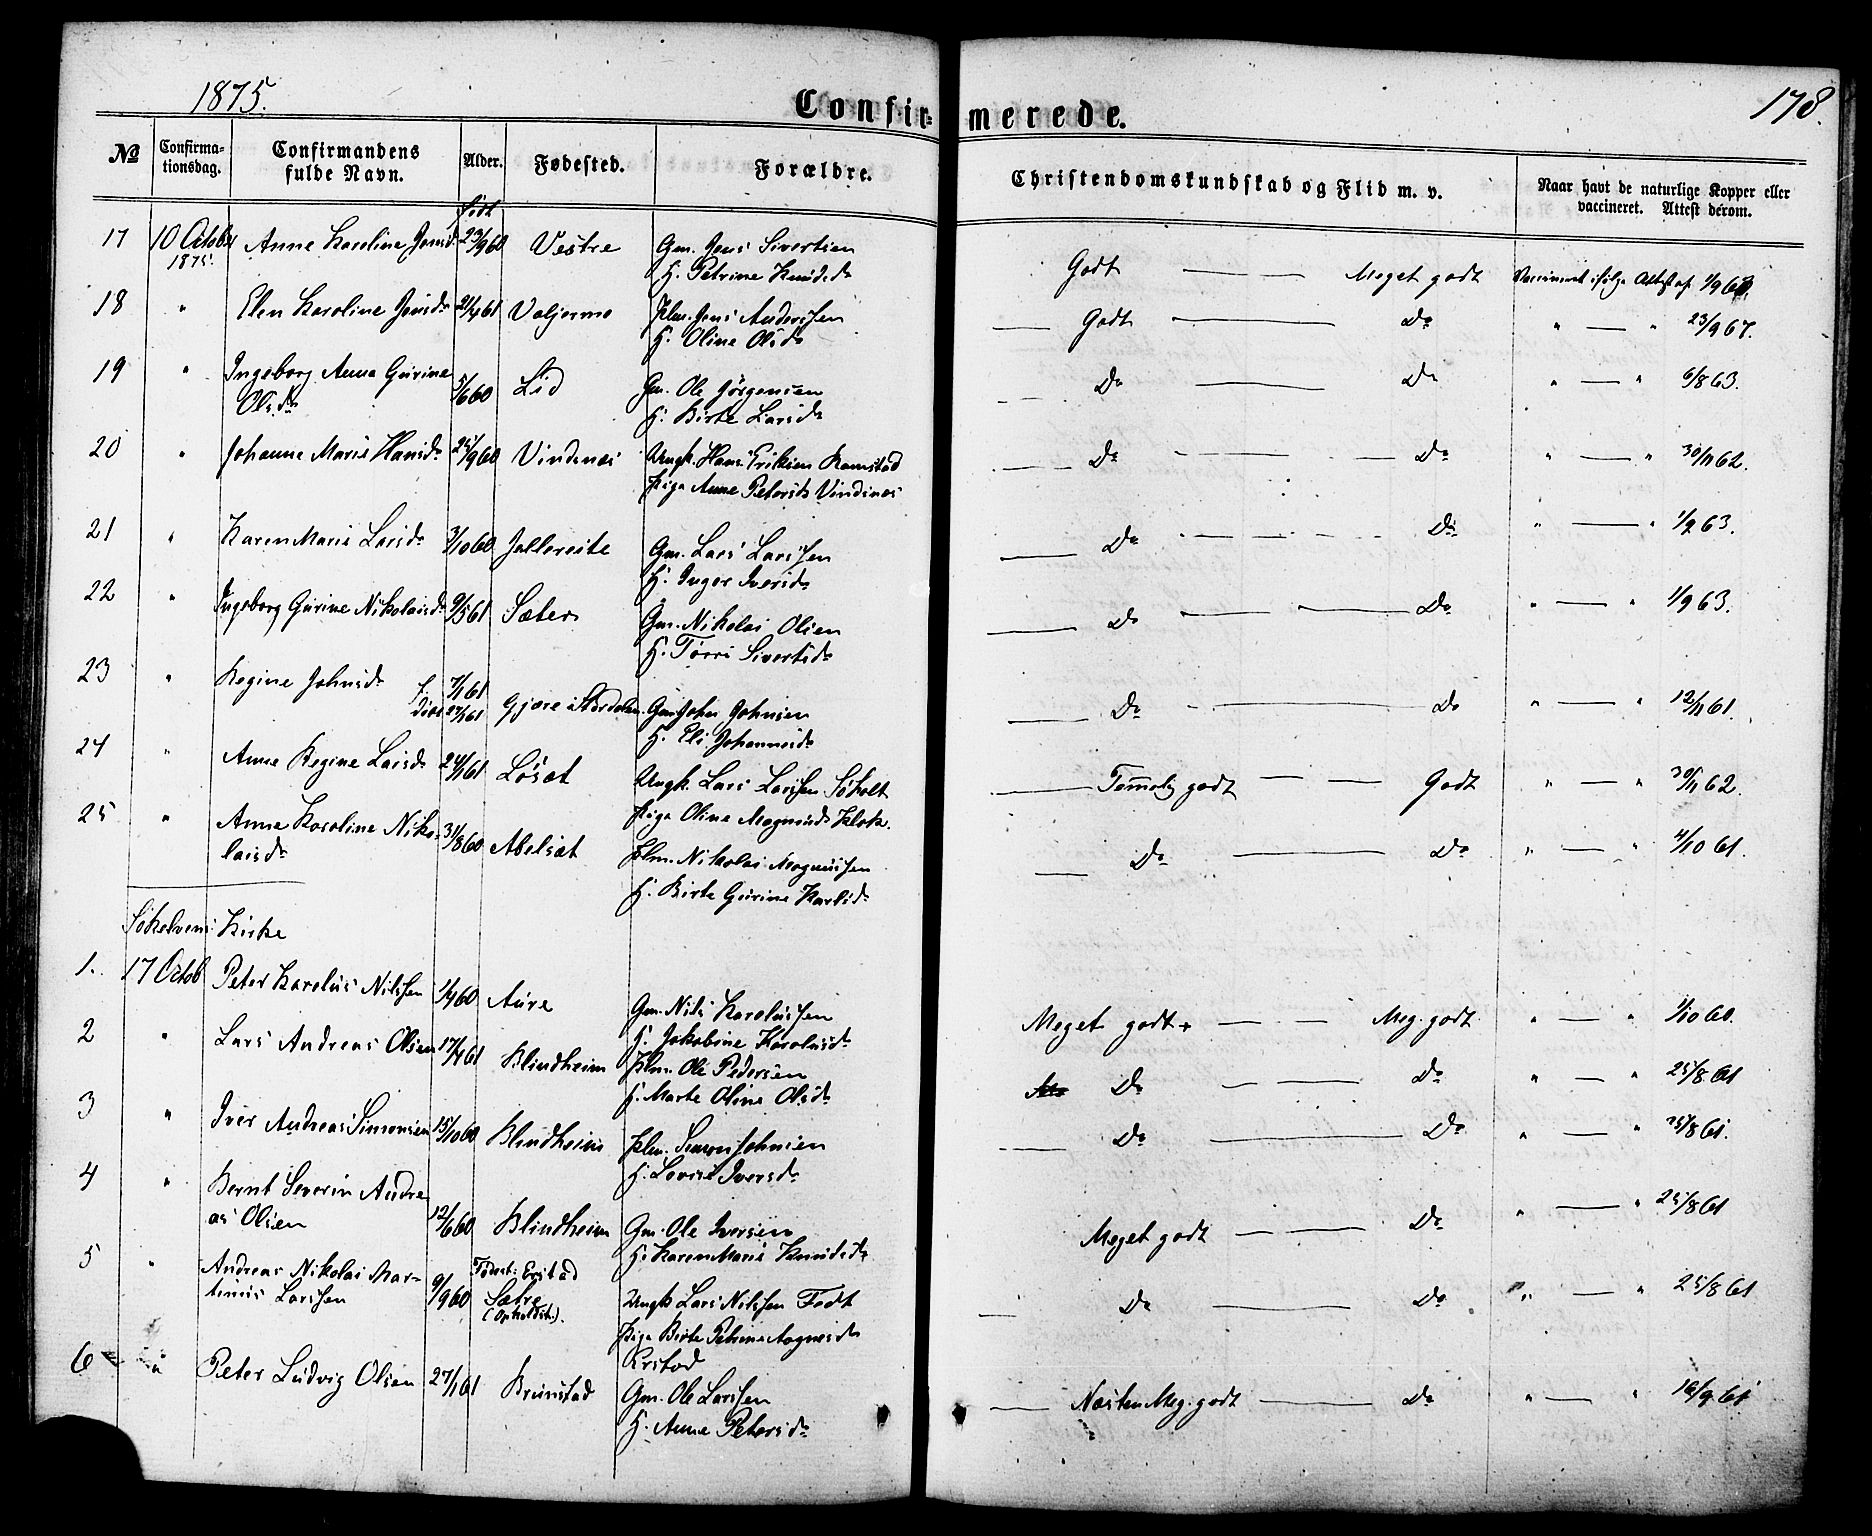 1875.
Confir=
merede.
178.
No
Confirma-
tionsdag.
Confirmandens
fulde Navn.
Alder.
Fødested.
Forældre.
Christendomskundskab og Flid m. v.
Naar havt de naturlige Kopper eller
vaccineret. Attest derom.
Født
17 10 Octobr 1875. Anne Karoline Jensd. 23/9 60 Vestre Gm. Jens Sivertsen Godt — — Meget godt Vaccineret ifølge Attest af 1/9 60
H. Petrine Knudsd.
18 " Elen Karoline Jensd. 21/4 61 Valjermo Plm. Jens Anderssen — Godt — — Do " — " 23/9 67.
H. Oline Olsd.
19 " Ingeborg Anna Gurine 5/6 60 Lid Gm. Ole Jørgensen — Do — Do " — " 6/8 63.
Olsd. H. Birte Larsd.
20 " Johanne Marie Hansd. 25/9 60 Vindsnes Ungk. Hans Eriksen Ramstad — Do — — Do " — " 30/11 62.
Pige Anne Petersd. Vindsnes
21 " Karen Marie Larsd. 3/10 60 Jallereite Gm. Lars Larssen — Do — — Do " — " 1/9 63.
H. Inger Iversd.
22 " Ingeborg Gurine Nikolaisd. 9/5 61 Sæter Gm. Nikolai Olsen — Do — — Do " — " 1/9 63.
H. Torri Sivertsd.
23 " Regine Johnsd. f. 7/1 61 Gjære i Stordalen Gm. John Johnsen — Do — Do " — " 12/11 61.
døbt 27/1 61 H. Eli Johannesd.
24 " Anne Regine Larsd. 24/1 61 Løset Ungk. Lars Larssen Søholt — Temmelig godt — — Godt " — " 30/11 62.
Pige Oline Magnusd. Klok.
25 " Anne Karoline Niko- 31/8 60 Abelset Plm. Nikolai Magnussen — Do — Do " — " 4/10 61.
laisd. H. Birte Gurine Karlsd.
Søkelvens Kirke
1. 17 Octob Peter Karolus Nilssen 1/4 60 Aure Gm. Nils Karolussen Meget godt + — — Meg. godt " — " 1/10 60.
H. Jakobine Karolusd.
2 " Lars Andreas Olsen 17/4 61 Blindheim Plm. Ole Pedersen Do — — Do " — " 25/8 61
H. Marte Oline Olsd.
3 " Iver Andreas Simonsen 15/10 60 Blindheim Plm. Simon Johnsen — Do — Do " — " 25/8 61.
H. Lovise Iversd.
4 " Bernt Severin Andre 12/6 60 Blindheim Gm. Ole Iversen Meget godt — — Do " — " 25/8 61
as Olsen H. Karen Marie Knudsd.
5 " Andreas Nikolai Mar- 9/9 60 Fødest: Erstad Ungk Lars Nilssen Fedt — Do — Do " — " 25/8 61
tinus Larssen Sætre (Opholdst.). Pige Birte Petrine Aagnesd.
Erstad
6 " Peter Ludvig Olsen 27/1 61 Brunstad Gm. Ole Larssen — Næsten Meg. godt — Do " — " 16/9 61
H. Anne Petersd.